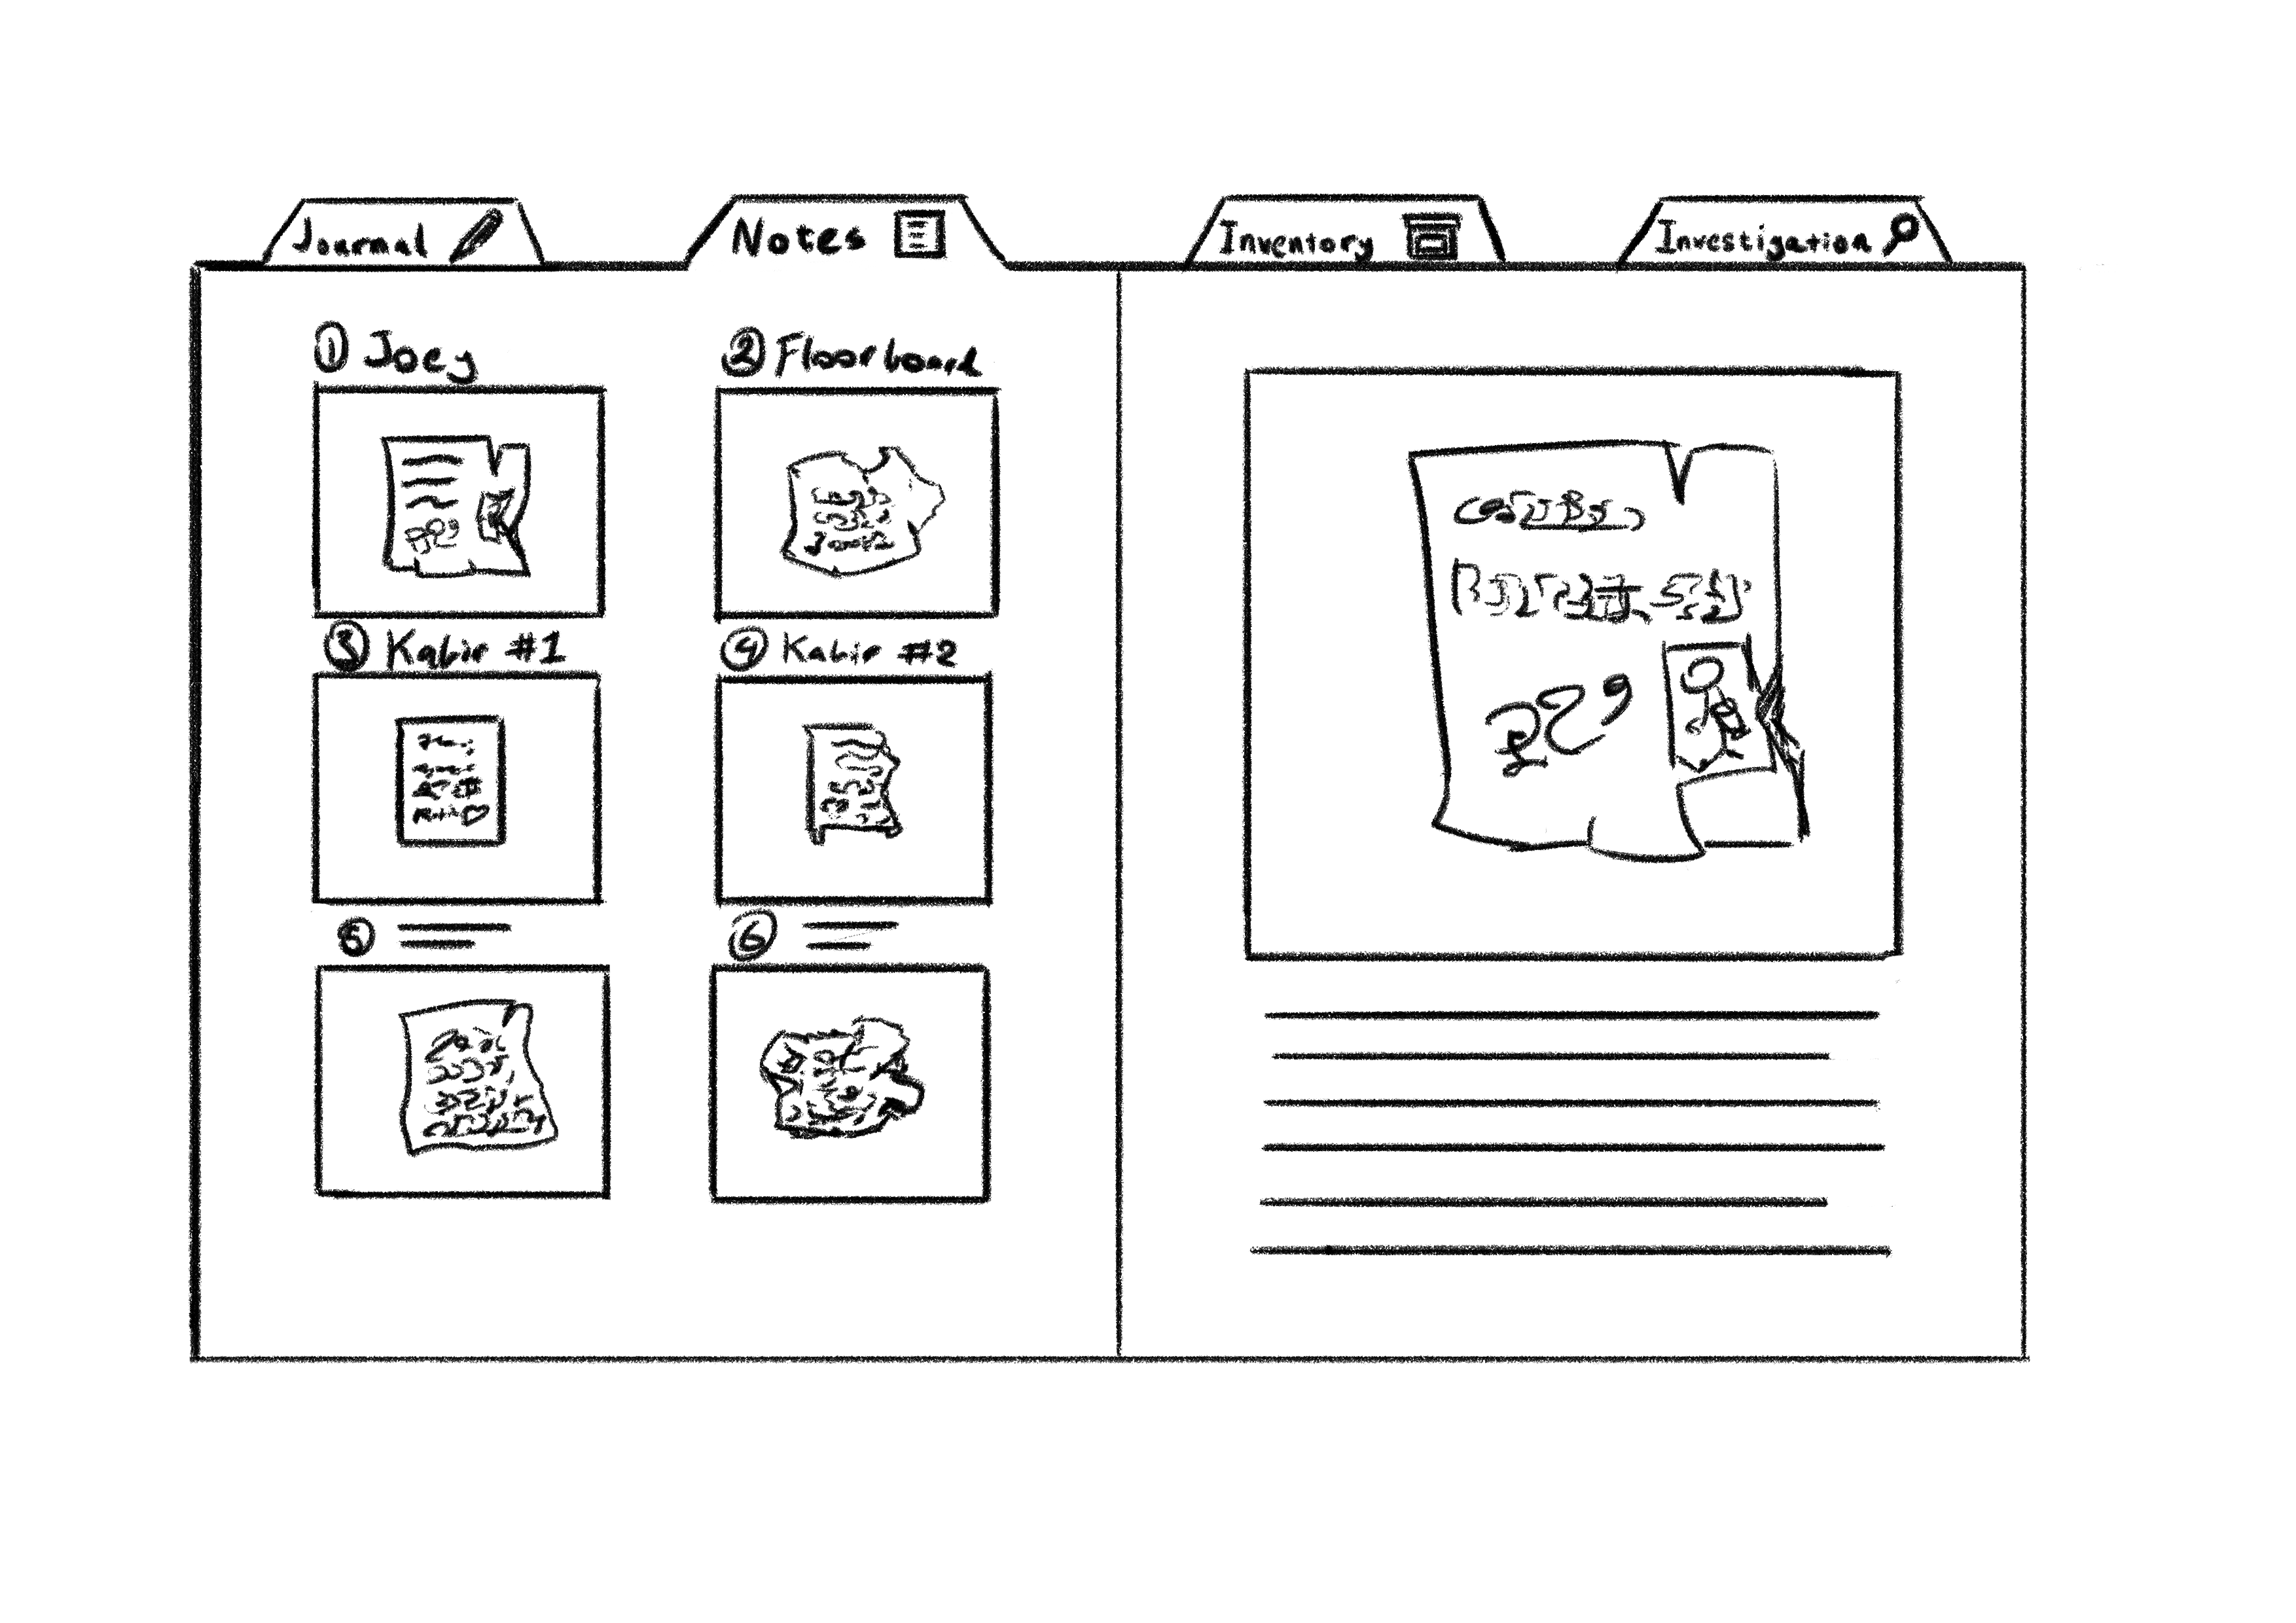 Journal
Notes
Inventory
Investigation
① Joey
② Floorboard
③ Kabir #1
④ Kabir #2
⑤
⑥